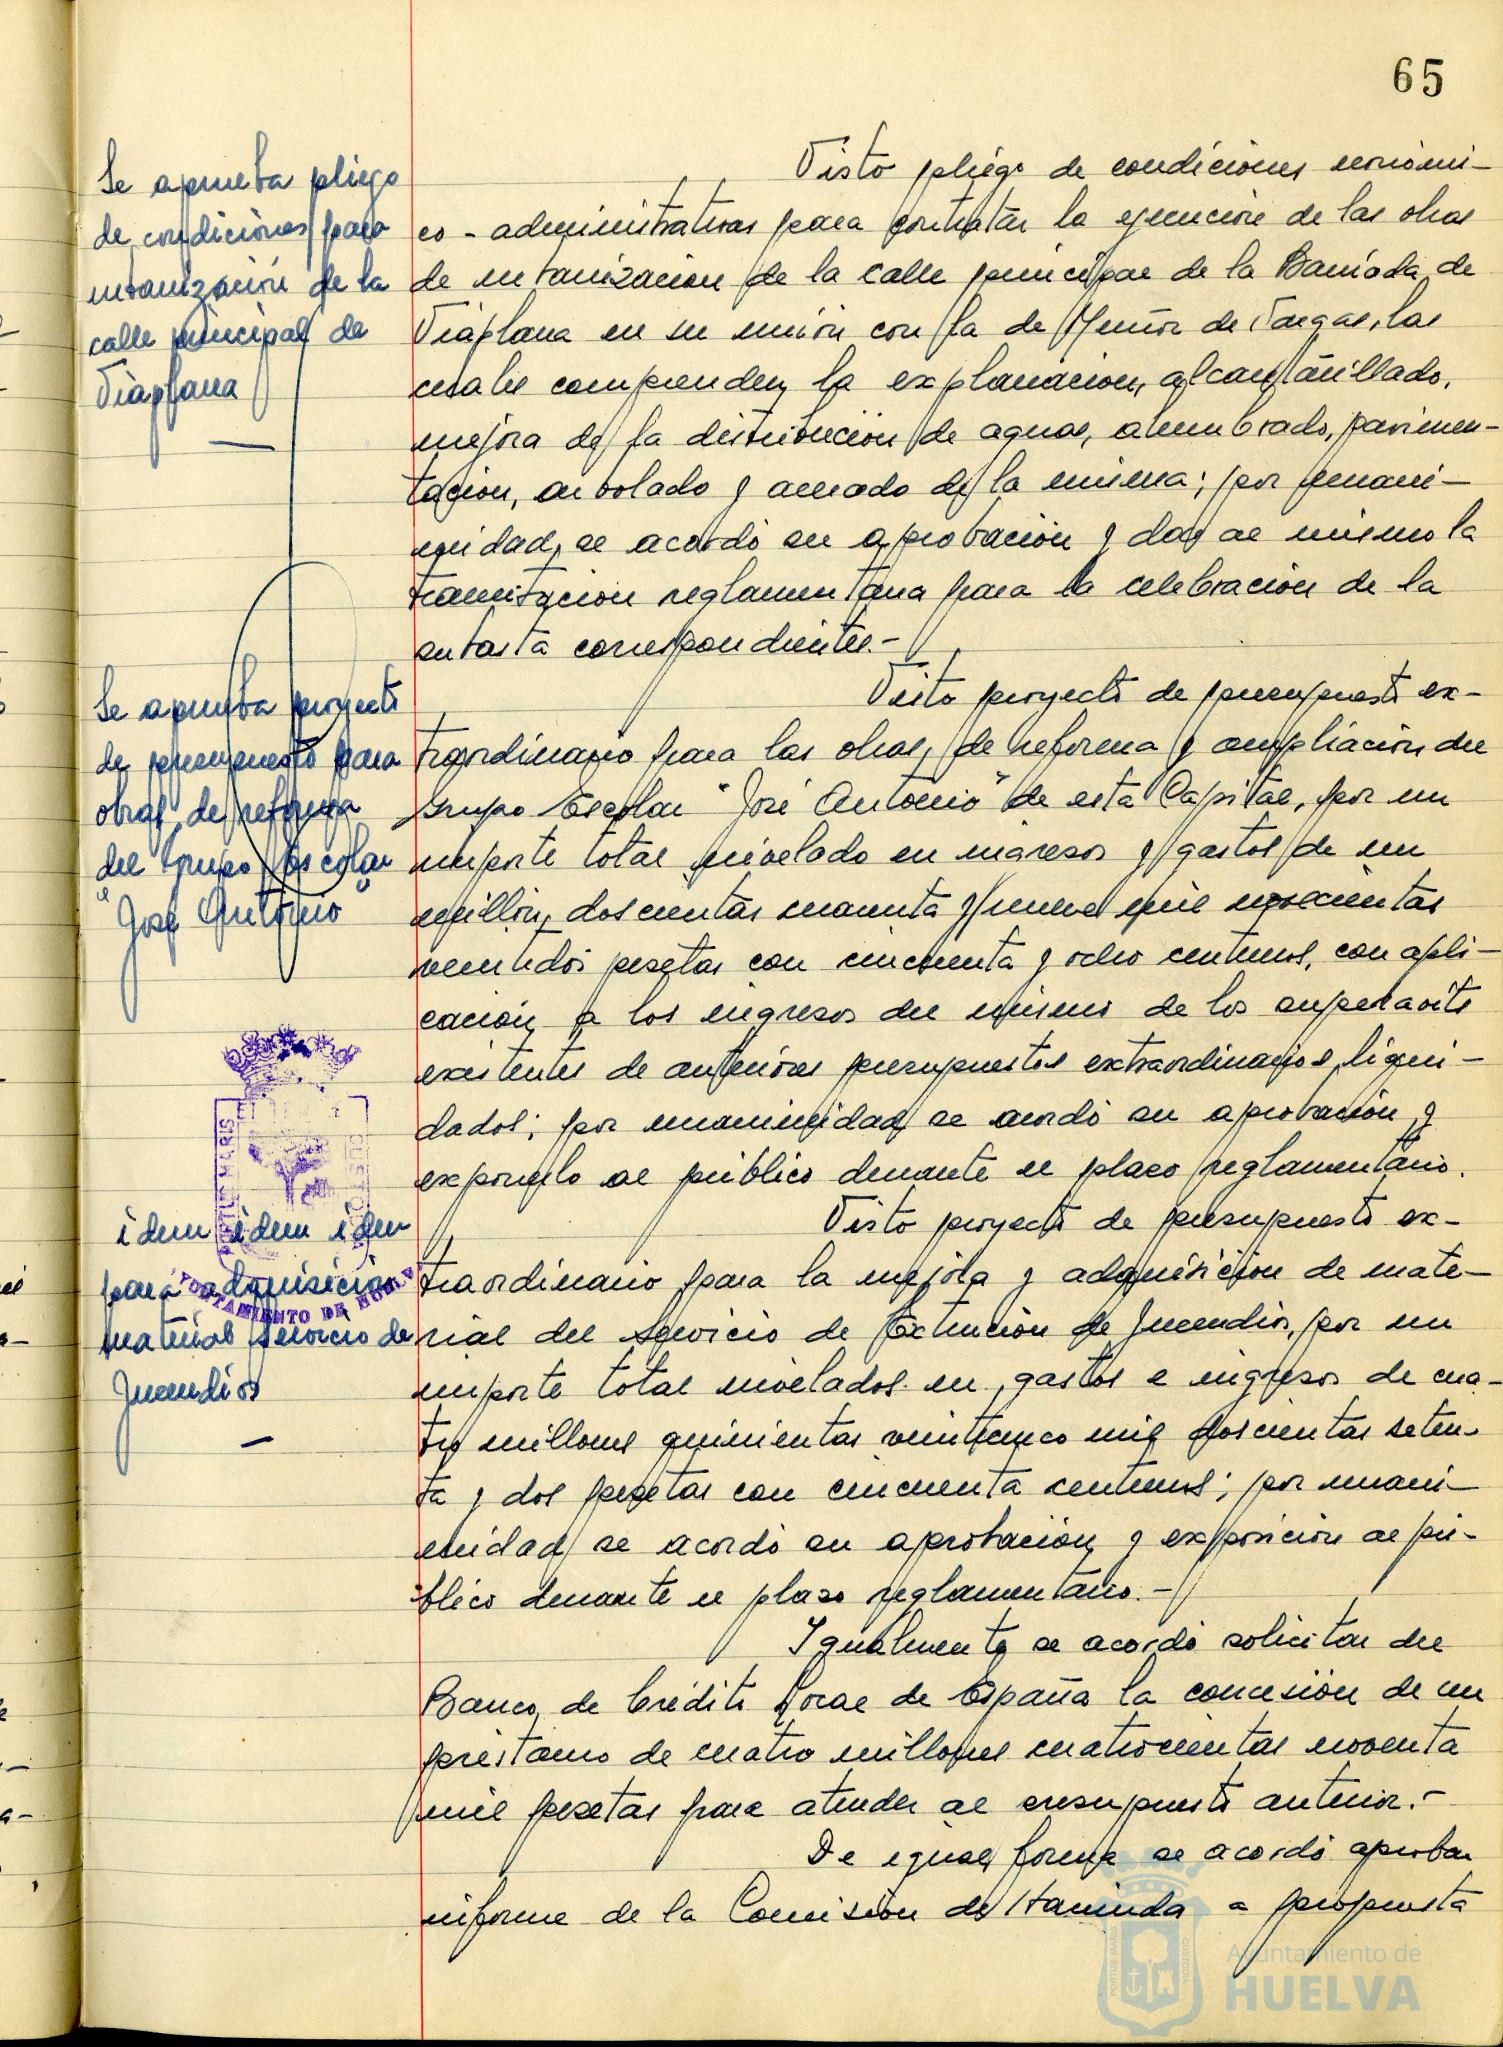 65
Se aprueba pliego
de condiciones para
urbanización de la
calle principal de
Viaplana
Visto pliego de condiciones económi-
co-administrativas para contratar la ejecución de las obras
de urbanización de la calle principal de la Barriada de
Viaplana en su unión con la de Muñoz de Vargas, las
cuales comprenden la explanación, alcantarillado,
mejora de la distribución de aguas, alumbrado, pavimen-
tación, arbolado y acerado de la misma; por unani-
midad, se acordó su aprobación y dar al mismo la
tramitación reglamentaria para la celebración de la
subasta correspondientes.-
Se aprueba proyecto
de presupuesto para
obras de reforma
del Grupo Escolar
"José Antonio"
Visto proyecto de presupuesto ex-
traordinario para las obras, de reforma y ampliación del
Grupo Escolar "José Antonio" de esta Capital, por un
importe total nivelado en ingresos y gastos de un
millón, doscientas cuarenta y nueve mil novecientas
veintidós pesetas con cincuenta y ocho centimos, con apli-
cación a los ingresos del mismo de los superavits
existentes de anteriores presupuestos extraordinarios liqui-
dados; por unanimidad se acordó su aprobación y
exponerlo al público durante el plazo reglamentario.
PORTUS MARIS
CUSTODIA
AYUNTAMIENTO DE HUELVA
idem idem idem
para adquisición
material servicio de
Incendios
Visto proyecto de presupuesto ex-
traordinario para la mejora y adquisición de mate-
rial del Servicio de Extinción de Incendios, por un
importe total nivelados en gastos e ingresos de cua-
tro millones quinientas veinticinco mil doscientas seten-
ta y dos pesetas con cincuenta centimos; por unani-
midad se acordó su aprobación y exposición al pú-
blico durante el plazo reglamentario.-
Igualmente se acordó solicitar del
Banco de Crédito Local de España la concesión de un
préstamo de cuatro millones cuatrocientas noventa
mil pesetas para atender al presupuesto anterior.-
De igual forma se acordó aprobar
informe de la Comisión de Hacienda a propuesta
Ayuntamiento de
HUELVA